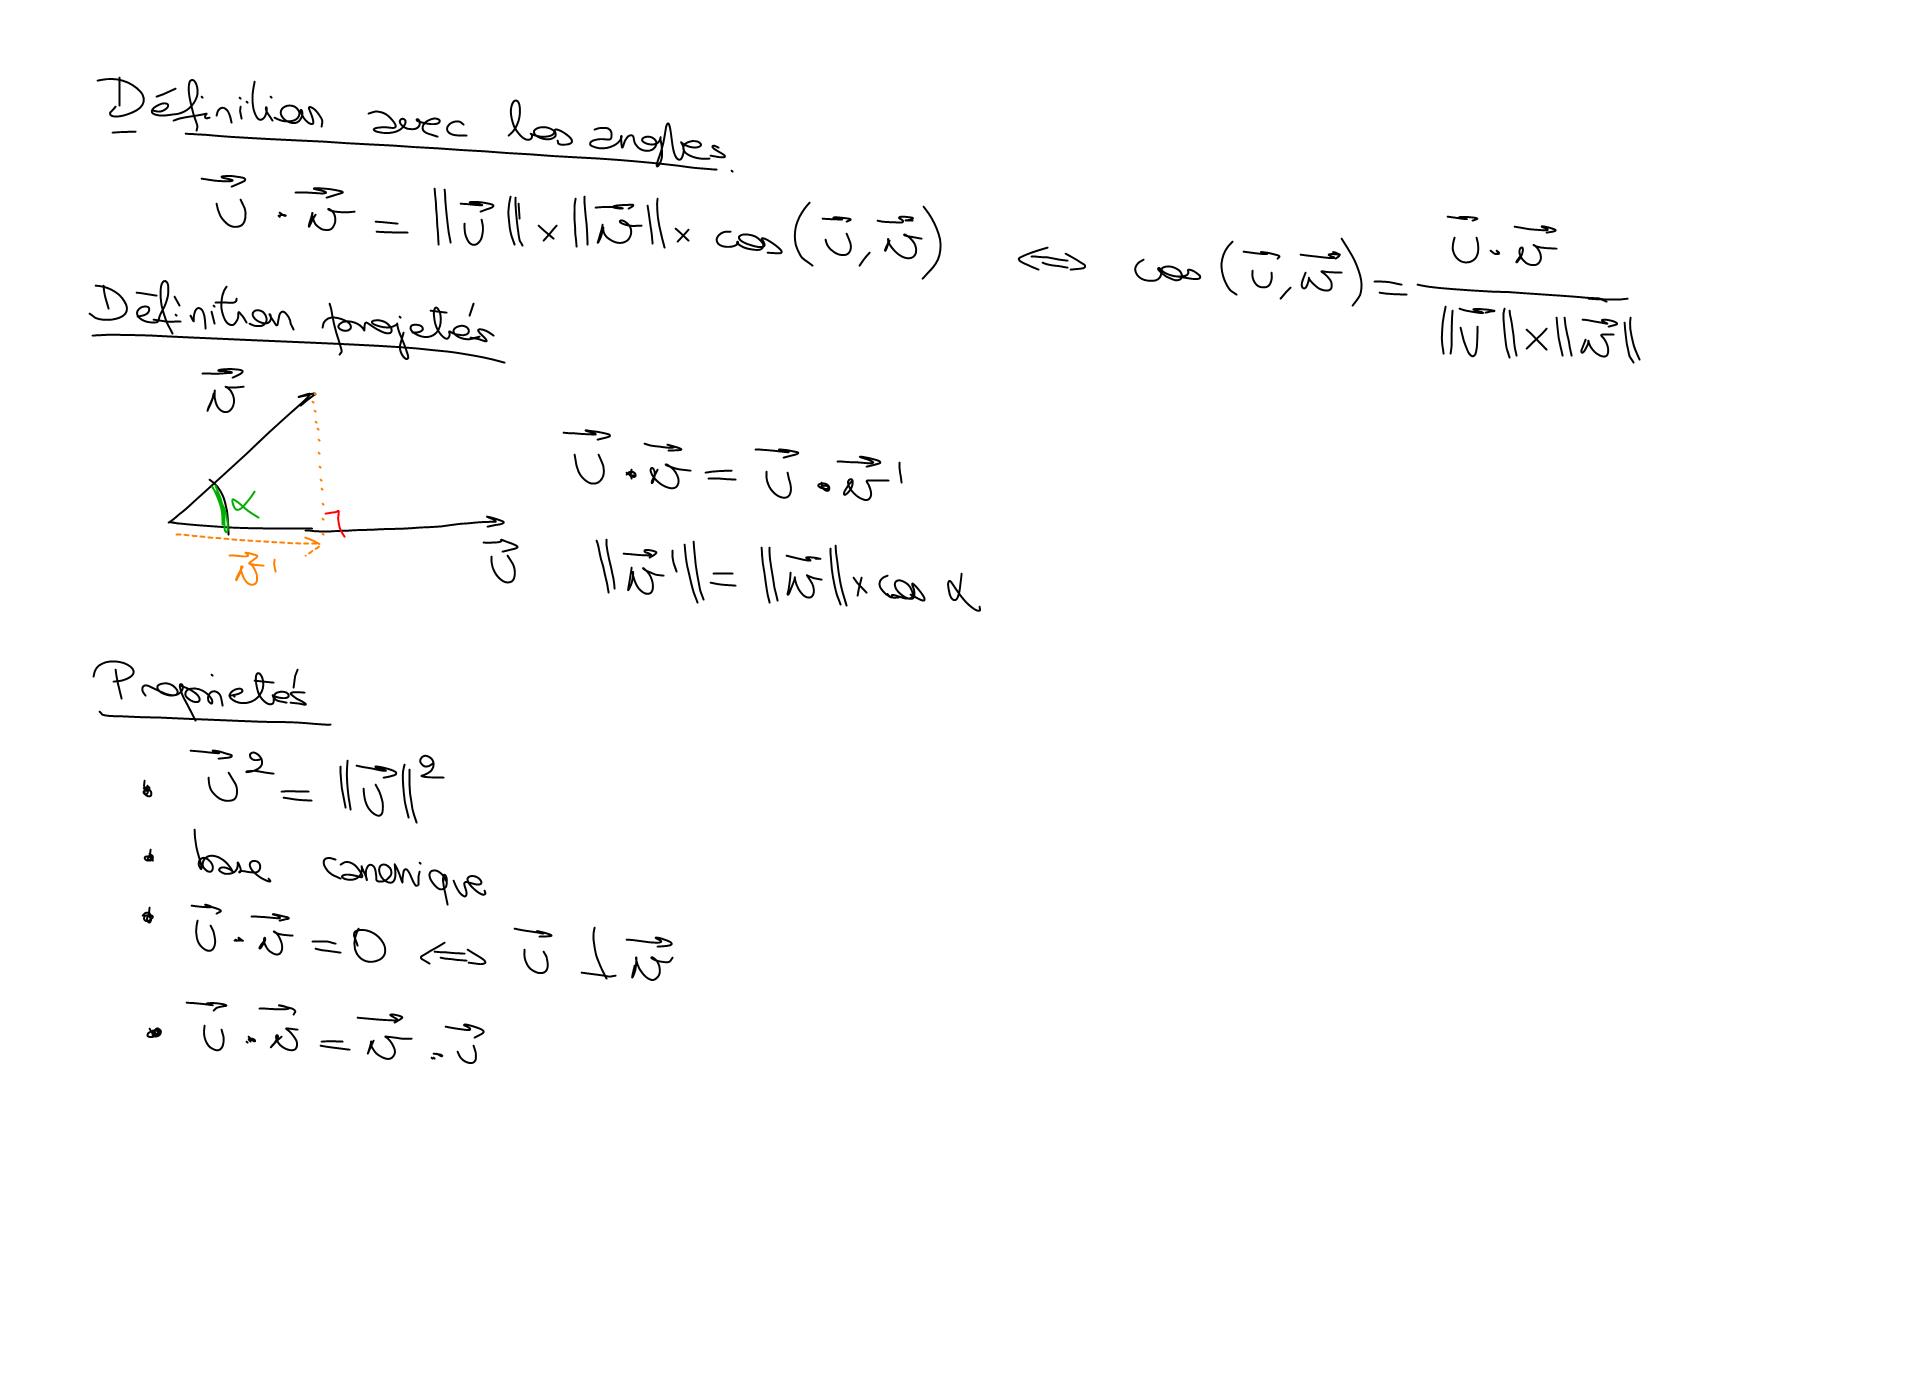 Définition avec les angles.
u⃗ · v⃗ = ||u⃗|| × ||v⃗|| × cos(u⃗, v⃗) ⟺ cos(u⃗, v⃗) = (u⃗ · v⃗) / (||u⃗|| × ||v⃗||)
Définition projetés
v⃗
u⃗ · v⃗ = u⃗ · v⃗'
α
v⃗'
u⃗
||v⃗'|| = ||v⃗|| × cos α
Proprietés
• u⃗² = ||u⃗||²
• base canonique
• u⃗ · v⃗ = 0 ⟺ u⃗ ⊥ v⃗
• u⃗ · v⃗ = v⃗ · u⃗